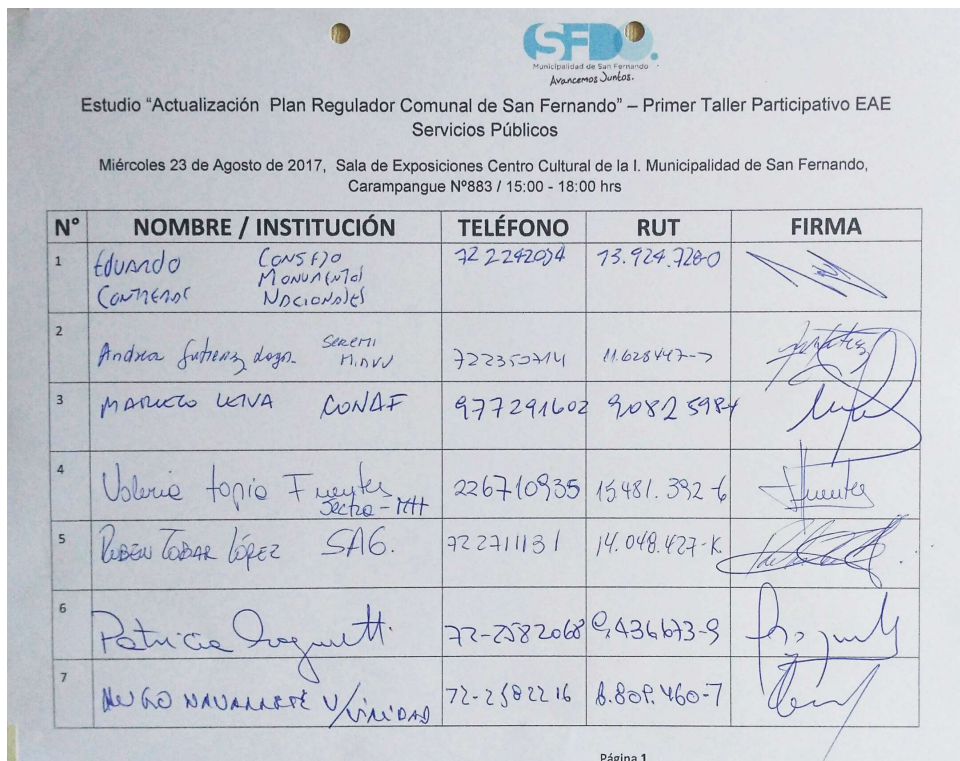 SFDO.
Municipalidad de San Fernando
Avancemos Juntos.
Estudio “Actualización Plan Regulador Comunal de San Fernando” – Primer Taller Participativo EAE
Servicios Públicos
Miércoles 23 de Agosto de 2017, Sala de Exposiciones Centro Cultural de la I. Municipalidad de San Fernando,
Carampangue Nº883 / 15:00 - 18:00 hrs
N° NOMBRE / INSTITUCIÓN TELÉFONO RUT FIRMA
1 Eduardo Consejo 722242034 13.924.728-0
Monumentos
Contreras Nacionales
2 Andrea Gutierrez Seremi
Minvu 722350714 11.628447-7
3 MARCELO LEIVA CONAF 977291602
4 Valeria tapia Fuentes 226710935 15481.392-6 Fuentes
Sectra - MTT
5 RUBEN TOBAR LÓPEZ SAG. 722711131 14.048.427-K
6 Patricia 72-2582068 9.436673-9
7 HUGO NAVARRETE V/VIALIDAD 72-2582216 8.809.460-7
Página 1